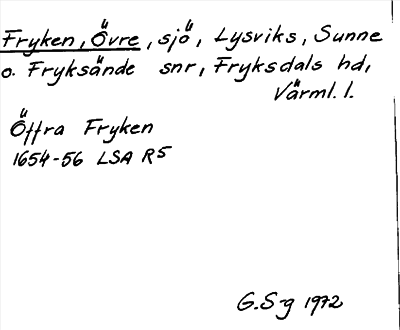 Fryken, Övre, sjö, Lysviks, Sunne
o. Fryksände snr, Fryksdals hd,
Värml. l.
Öffra Fryken
1654-56 LSA R5
G.S-g 1972